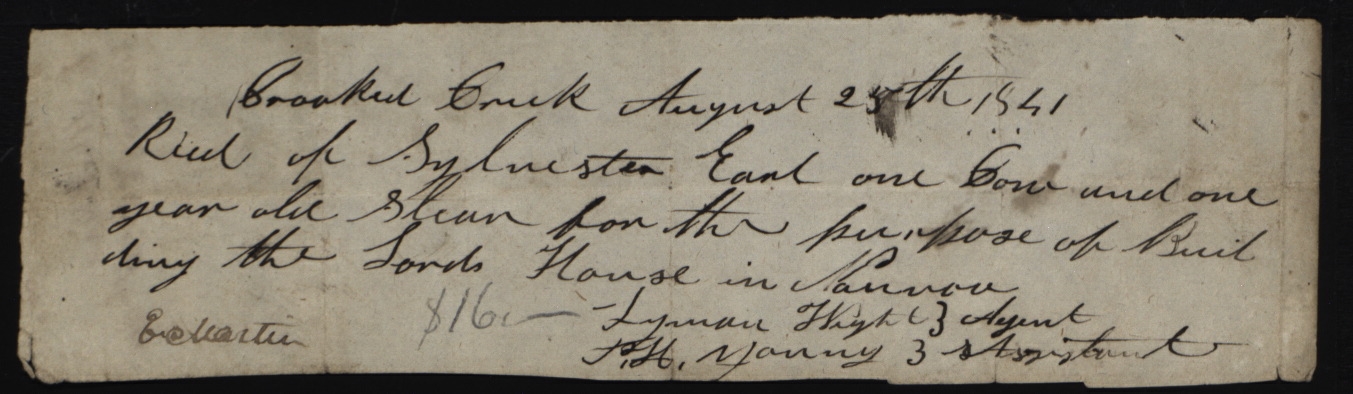 Crooked Creek August 25th 1841
Recd of Sylvester Earl one Cow and one
year old Stear for the purpose of Buil
ding the Lords House in Nauvoo
$16.— Lyman Wight } Agent
E Martin P.H. Young } Assistant